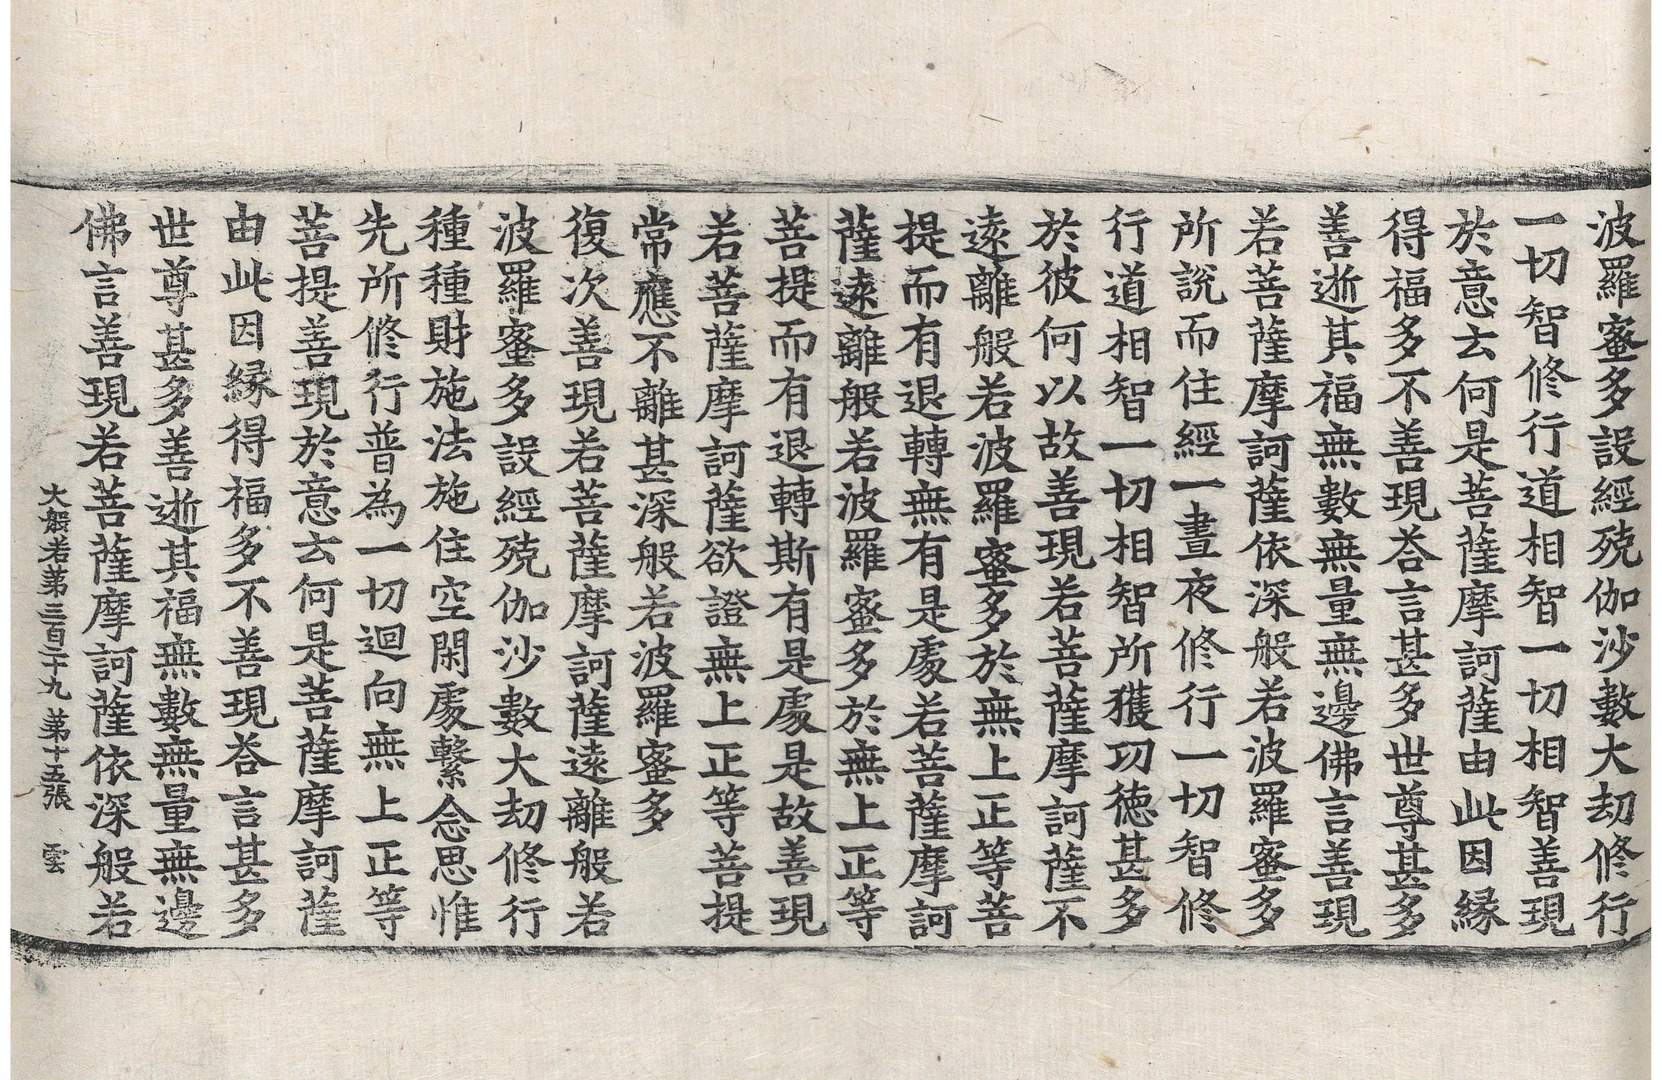 波羅蜜多設經殑伽沙數大劫修行
一切智修行道相智一切相智善現
於意云何是菩薩摩訶薩由此因緣
得福多不善現荅言甚多世尊甚多
善逝其福無數無量無邊佛言善現
若菩薩摩訶薩依深般若波羅蜜多
所說而住經一晝夜修行一切智修
行道相智一切相智所獲功德甚多
於彼何以故善現若菩薩摩訶薩不
遠離般若波羅蜜多於無上正等菩
提而有退轉無有是處若菩薩摩訶
薩遠離般若波羅蜜多於無上正等
菩提而有退轉斯有是處是故善現
若菩薩摩訶薩欲證無上正等菩提
常應不離甚深般若波羅蜜多
復次善現若菩薩摩訶薩遠離般若
波羅蜜多設經殑伽沙數大劫修行
種種財施法施住空閑處繫念思惟
先所修行普為一切迴向無上正等
菩提善現於意云何是菩薩摩訶薩
由此因緣得福多不善現荅言甚多
世尊甚多善逝其福無數無量無邊
佛言善現若菩薩摩訶薩依深般若
大般若第三百二十九 第十五張 雲